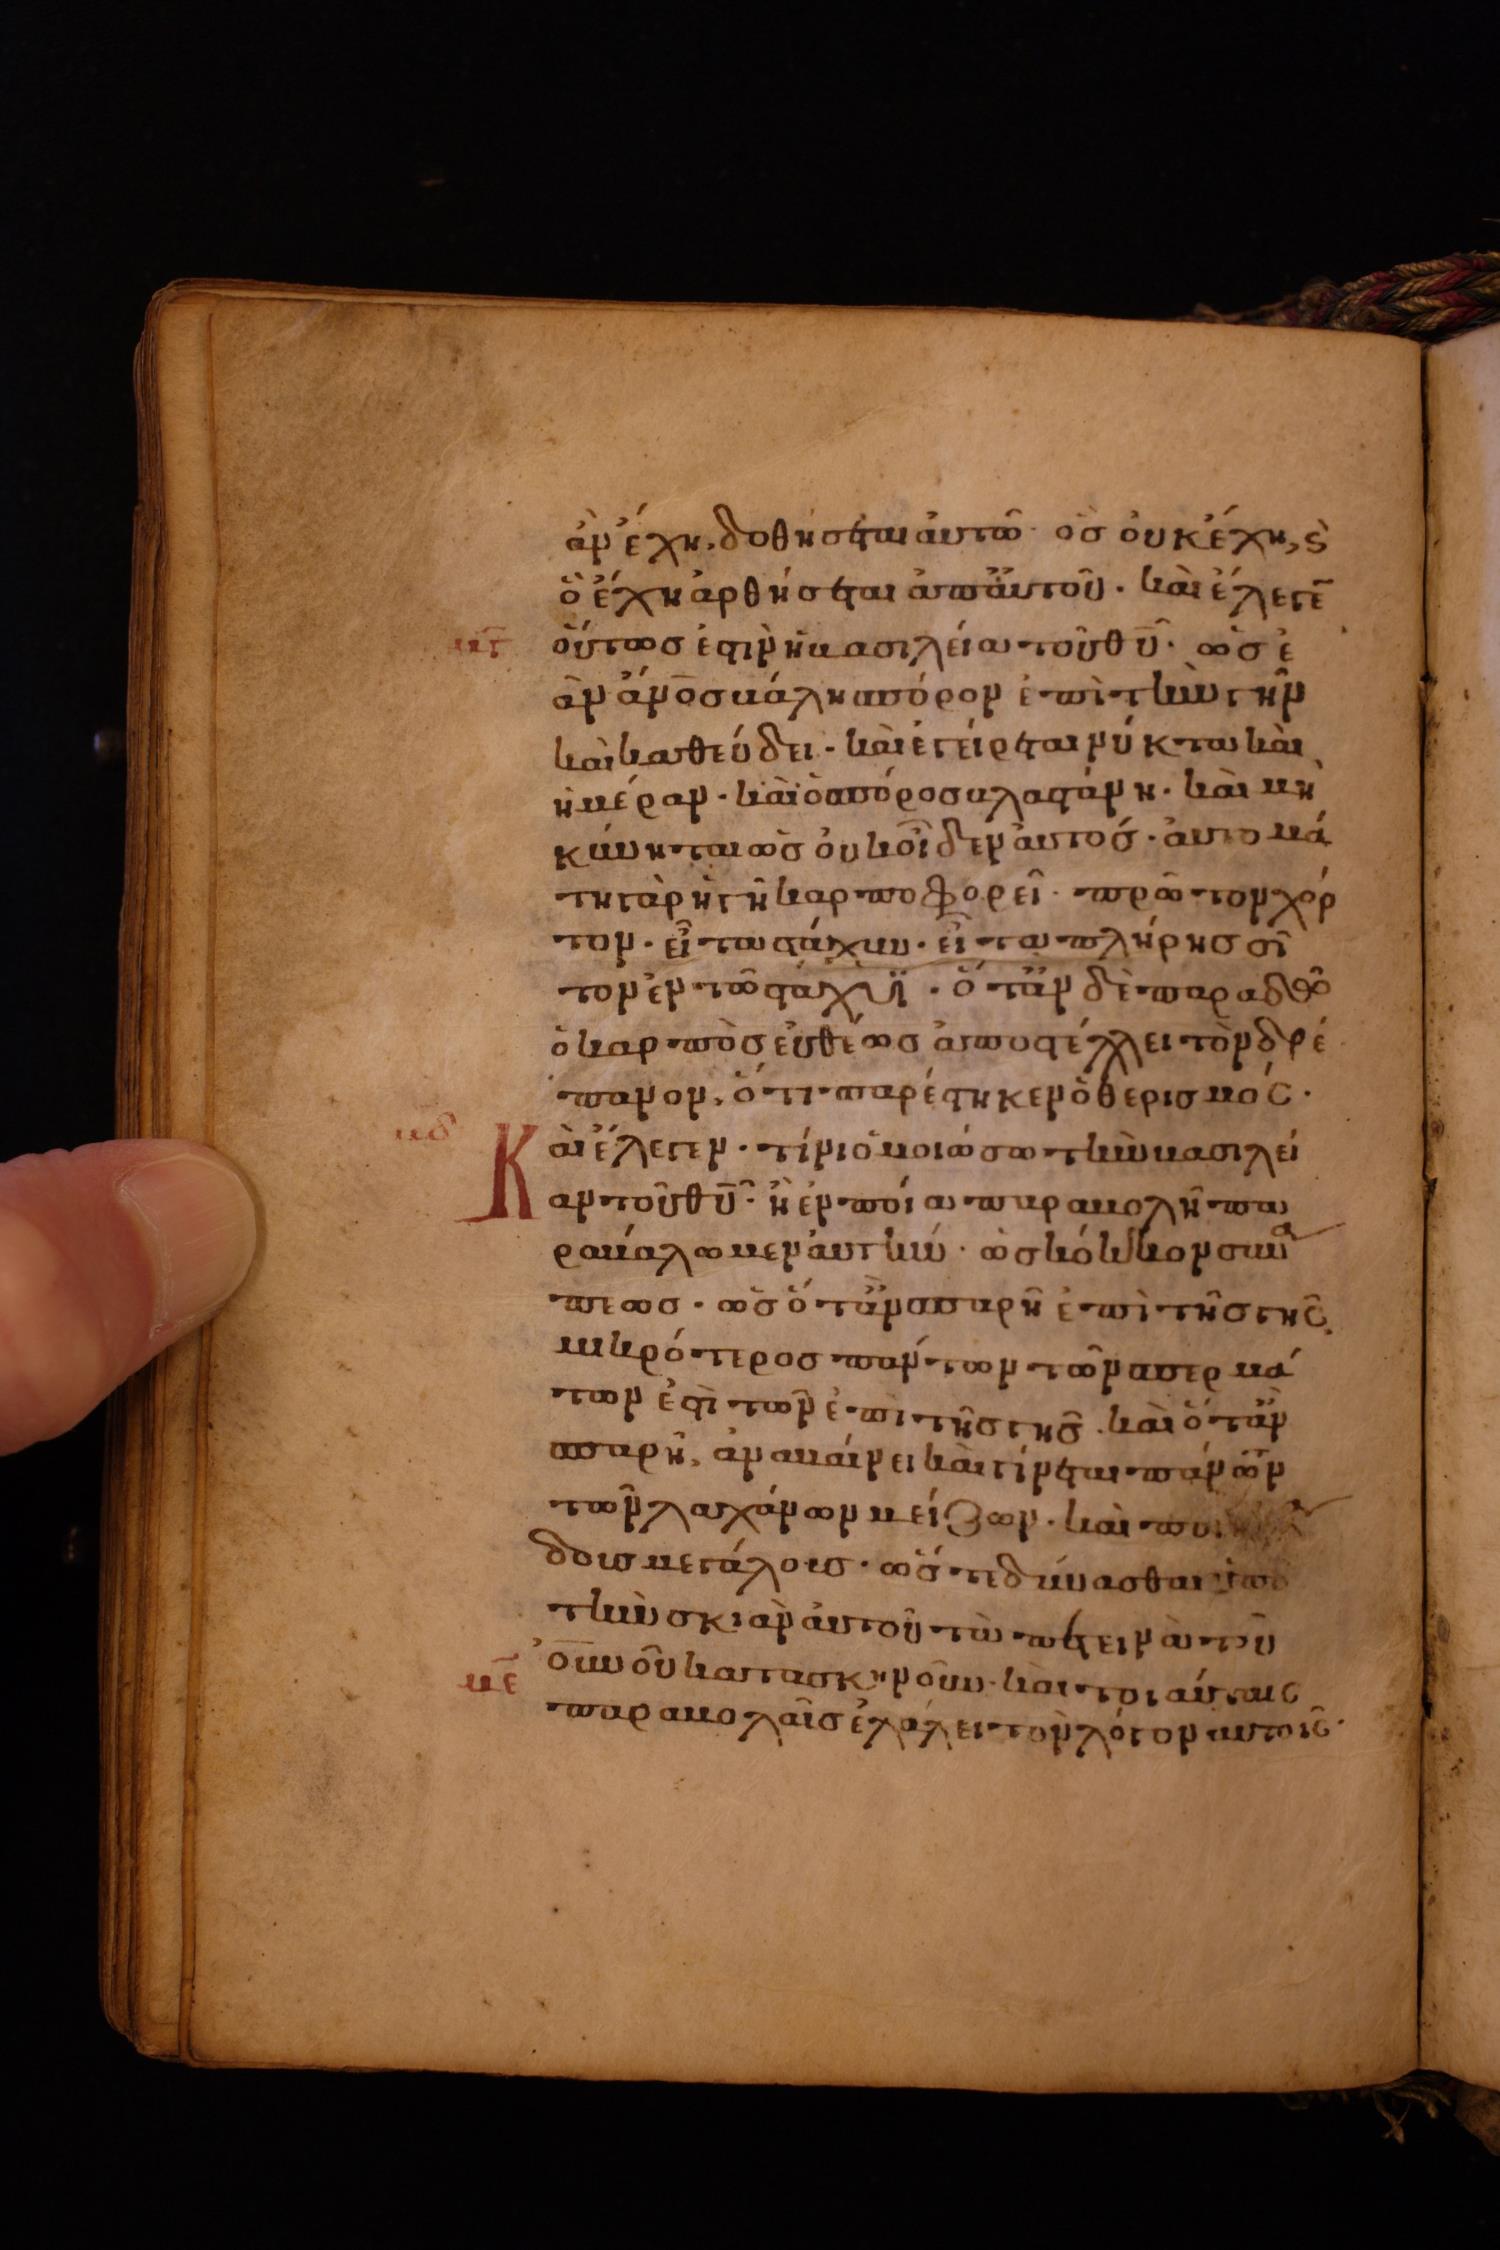 ἀν ἔχη, δοθήσεται αὐτῶ· ὃσ οὐκ ἔχη, ϛ
ὃ ἔχη ἀρθήσεται ἀπ' αὐτοῦ. καὶ ἔλεγε
μγ οὕτωσ ἐστὶν ἡ βασιλεία τοῦ θυ· ὡσ ἐ
ὰν ἄνοσ βάλη σπόρον ἐπὶ τὴν γῆν
καὶ καθεύδει· καὶ ἐγείρεται νύκτα καὶ
ἡμέραν· καὶ ὁ σπόροσ βλαστάνη· καὶ μη
κύνηται ὡσ οὐκ οἶδεν αὐτόσ· αὐτομά
τη γὰρ ἡ γῆ καρποφορεῖ· πρῶτον χόρ
τον· εἶτα στάχυν· εἶτα πλήρησ σῖ
τον ἐν τῶ στάχυϊ· ὅταν δὲ παραδθῶ
ὁ καρπὸσ εὐθέωσ ἀποστέλλει τὸν δρέ
πανον, ὅτι παρέστηκεν ὁ θερισμόσ·
μδ Καὶ ἔλεγεν· τίνι ὁμοιώσω τὴν βασιλεί
αν τοῦ θυ· ἢ ἐν ποία παραβολῆ πα
ραβάλωμεν αὐτήν· ὡσ κόκκον σινα
πεωσ· ὡσ ὅταν σπαρῆ ἐπὶ τῆσ γῆσ,
μικρότεροσ πάντων τῶν σπερμά
των ἐστὶ τῶν ἐπὶ τῆσ γῆσ· καὶ ὅταν
σπαρῆ, ἀναβαίνει καὶ γίνεται πάνων
τῶν λαχάνων μείζων· καὶ ποι
δοισ μεγάλοισ· ὥστε δύνασθαι ὑπὸ
τὴν σκιὰν αὐτοῦ τὰ πετεινὰ τοῦ
ουνου κατασκηνοῦν· καὶ τοιαύταισ
με παραβολαῖσ ἐλάλει τὸν λόγον αὐτοῖσ·